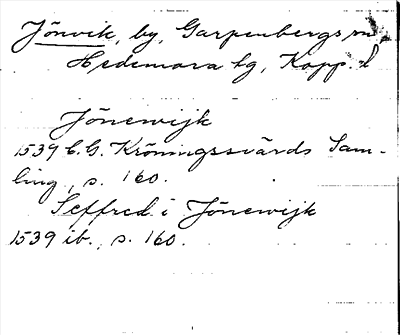 Jönvik, by, Garpenbergs sn
Hedemora tg, Kopp. l
Jönewijk
1539 C.G. Kröningssvärds Sam-
ling, s. 160.
Seffred i Jönewijk
1539 ib., s. 160.